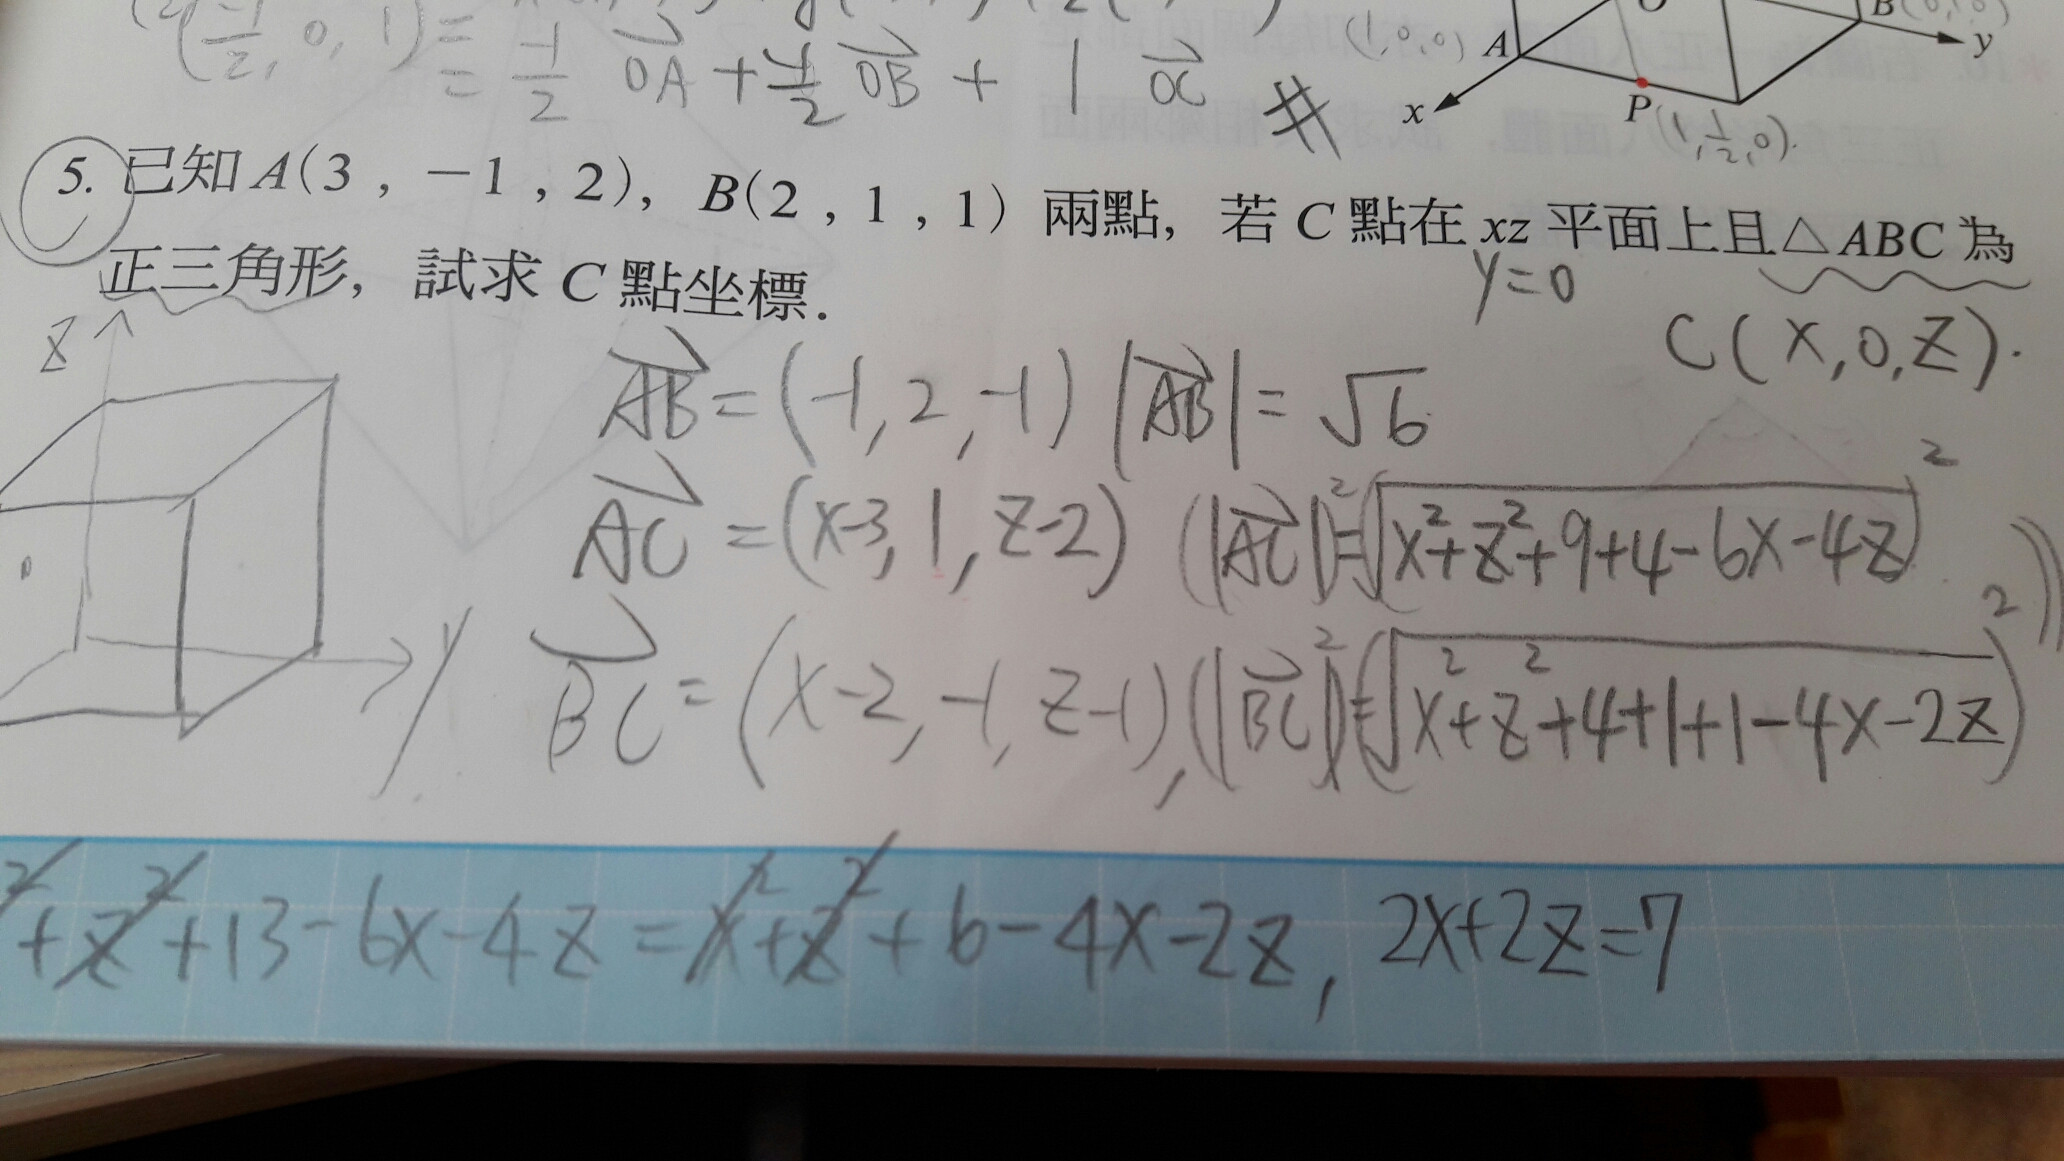 (-1/2, 0, 1) =
= -1/2 OA + 1/2 OB + 1 OC #
(1,0,0) A
B(0,1,0)
y
x
P(1,1/2,0).
5. 已知 A(3 , −1 , 2), B(2 , 1 , 1) 兩點, 若 C 點在 xz 平面上且△ABC 為
正三角形, 試求 C 點坐標.
y=0
C(x,0,z).
z
AB = (-1,2,-1) |AB| = √6
AC = (x-3,1,z-2) (|AC|)² = (√x²+z²+9+4-6x-4z)²
BC = (x-2,-1,z-1), (|BC|)² = (√x²+z²+4+1+1-4x-2z)²
y
²+z²+13-6x-4z = x²+z²+6-4x-2z, 2x+2z=7